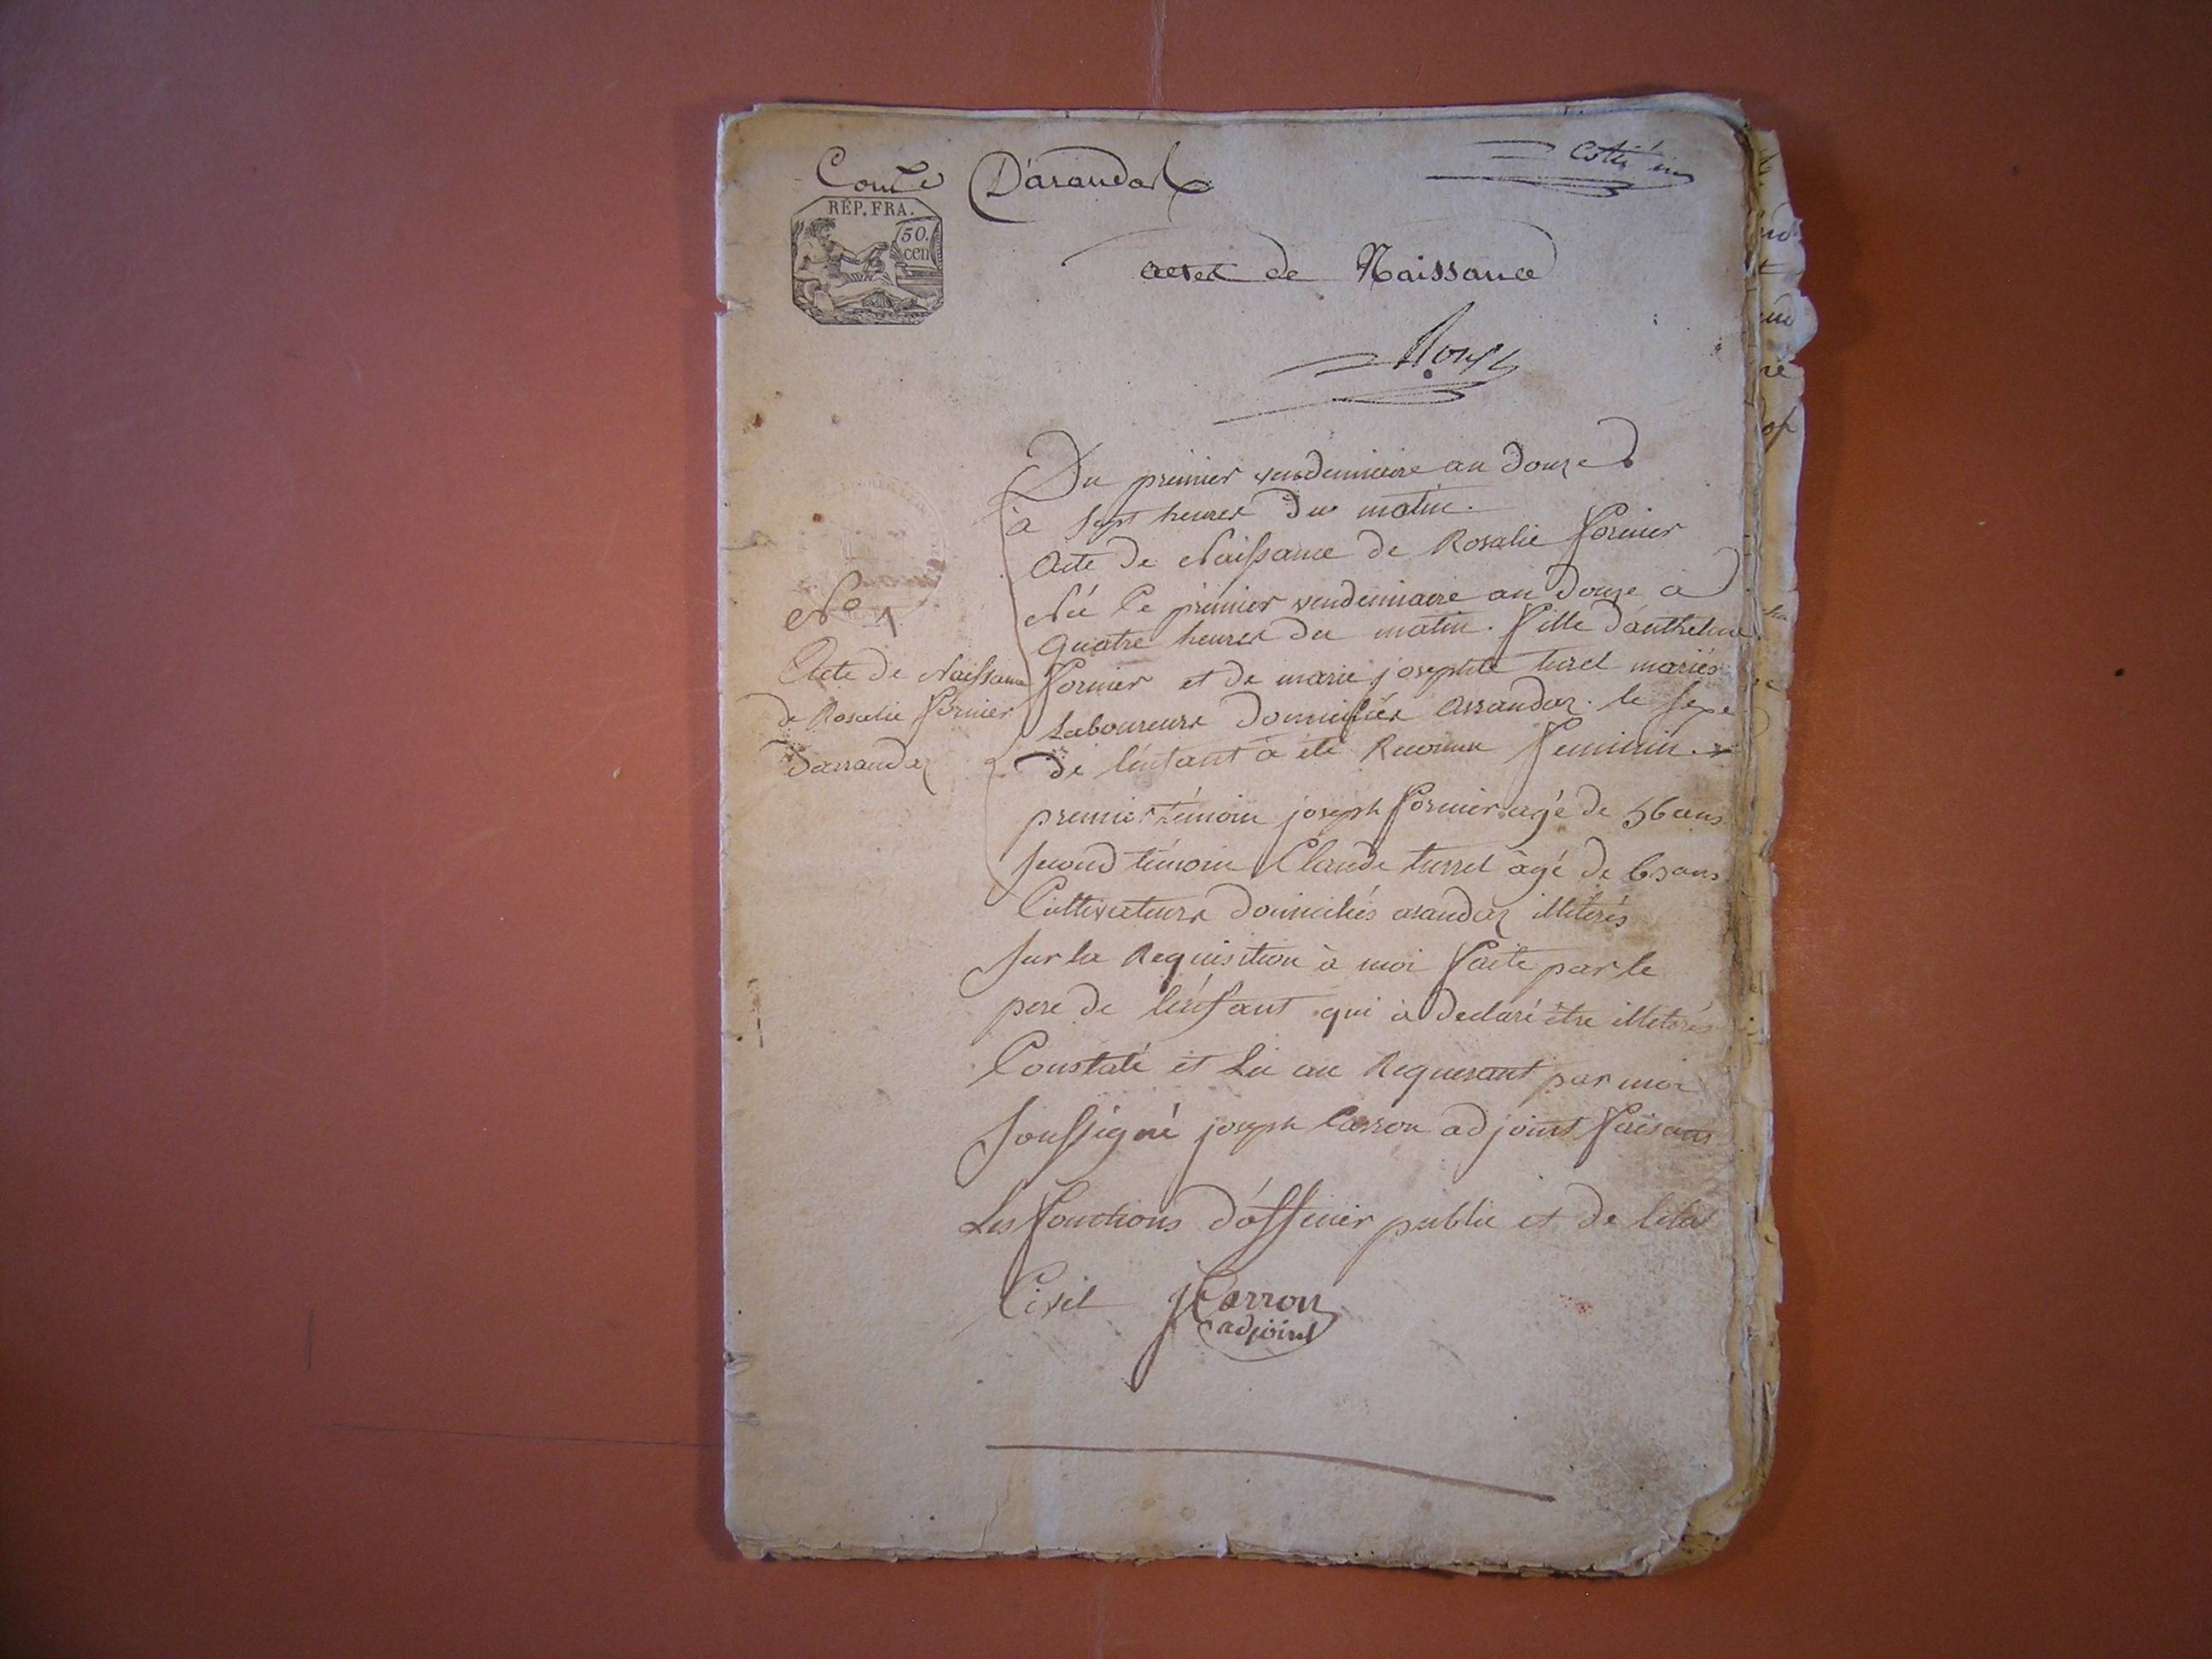 Com.e D'arandas
Cotté un
RÉP. FRA.
50.
cen
actes de Naissance
Roux
Du premier vendemiaire an douze
à sept heures du matin.
Acte de Naissance de Rosalie fornier
Née le premier vendemiaire an douze à
quatre heures du matin. fille d'anthelme
fornier et de marie josephte turel mariés
Laboureurs domiciliés arrandaz. le sexe
de l'enfant à été Reconnu feminin.
premier témoin joseph fornier agé de 56 ans
second témoin Claude turrel àgé de 63 ans
Cultivateurs domiciliés arandaz illiterés
sur la Requisition à moi faite par le
pere de l'enfant qui à declaré être illiterés
Constaté et Lu au Requerant par moi
soussigné joseph Carron adjoint faisant
Les fonctions d'officier public et de l'etat
Civil JCarron
adjoint
No 1
Acte de Naissance
de Rosalie fornier
Darrandaz